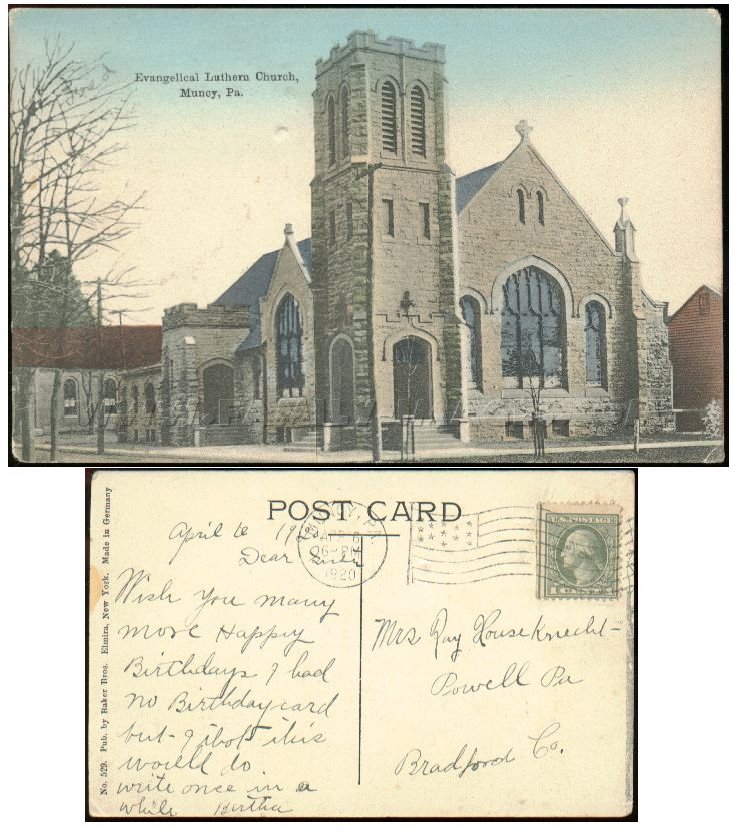 Evangelical Luthern Church,
Muncy, Pa.
POST CARD
April 6 1920
Dear Sister
Wish you many
more Happy
Birthdays I had
no Birthday card
but I thot this
would do
write once in a
while Bertha
6 - PM
1920
U.S. POSTAGE
Mrs Ray Houseknecht
Powell Pa
Bradford Co.
No. 529. Pub. by Baker Bros. Elmira, New York. Made in Germany